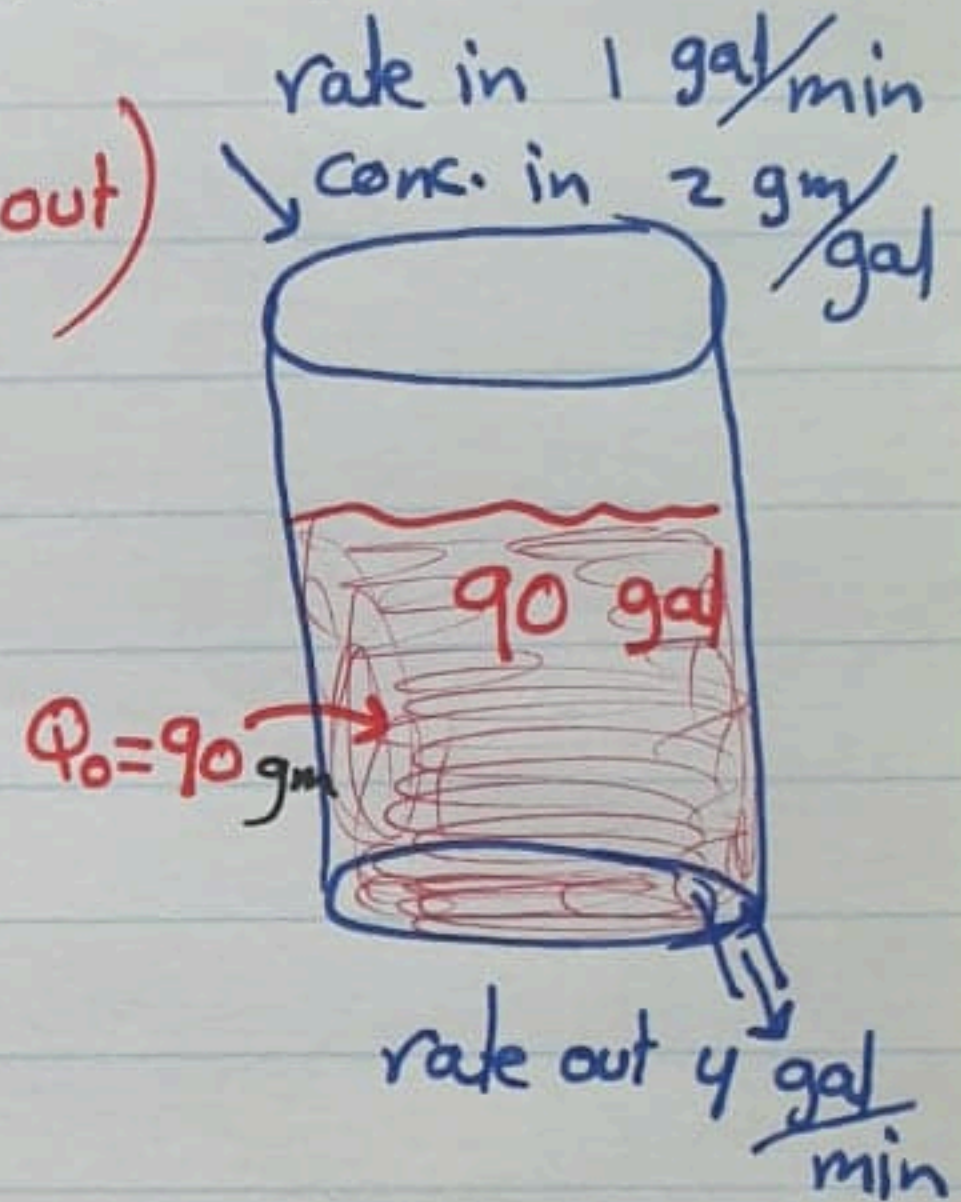 rate in 1 gal/min
out)
conc. in 2 gm/gal
90 gal
Q₀=90 gm
rate out 4 gal/min